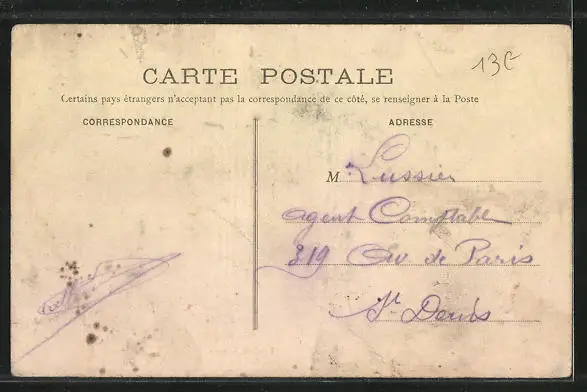 13€
CARTE POSTALE
Certains pays étrangers n'acceptant pas la correspondance de ce côté, se renseigner à la Poste
CORRESPONDANCE
ADRESSE
M Lussier
agent Comptable
319 Av de Paris
St Denis